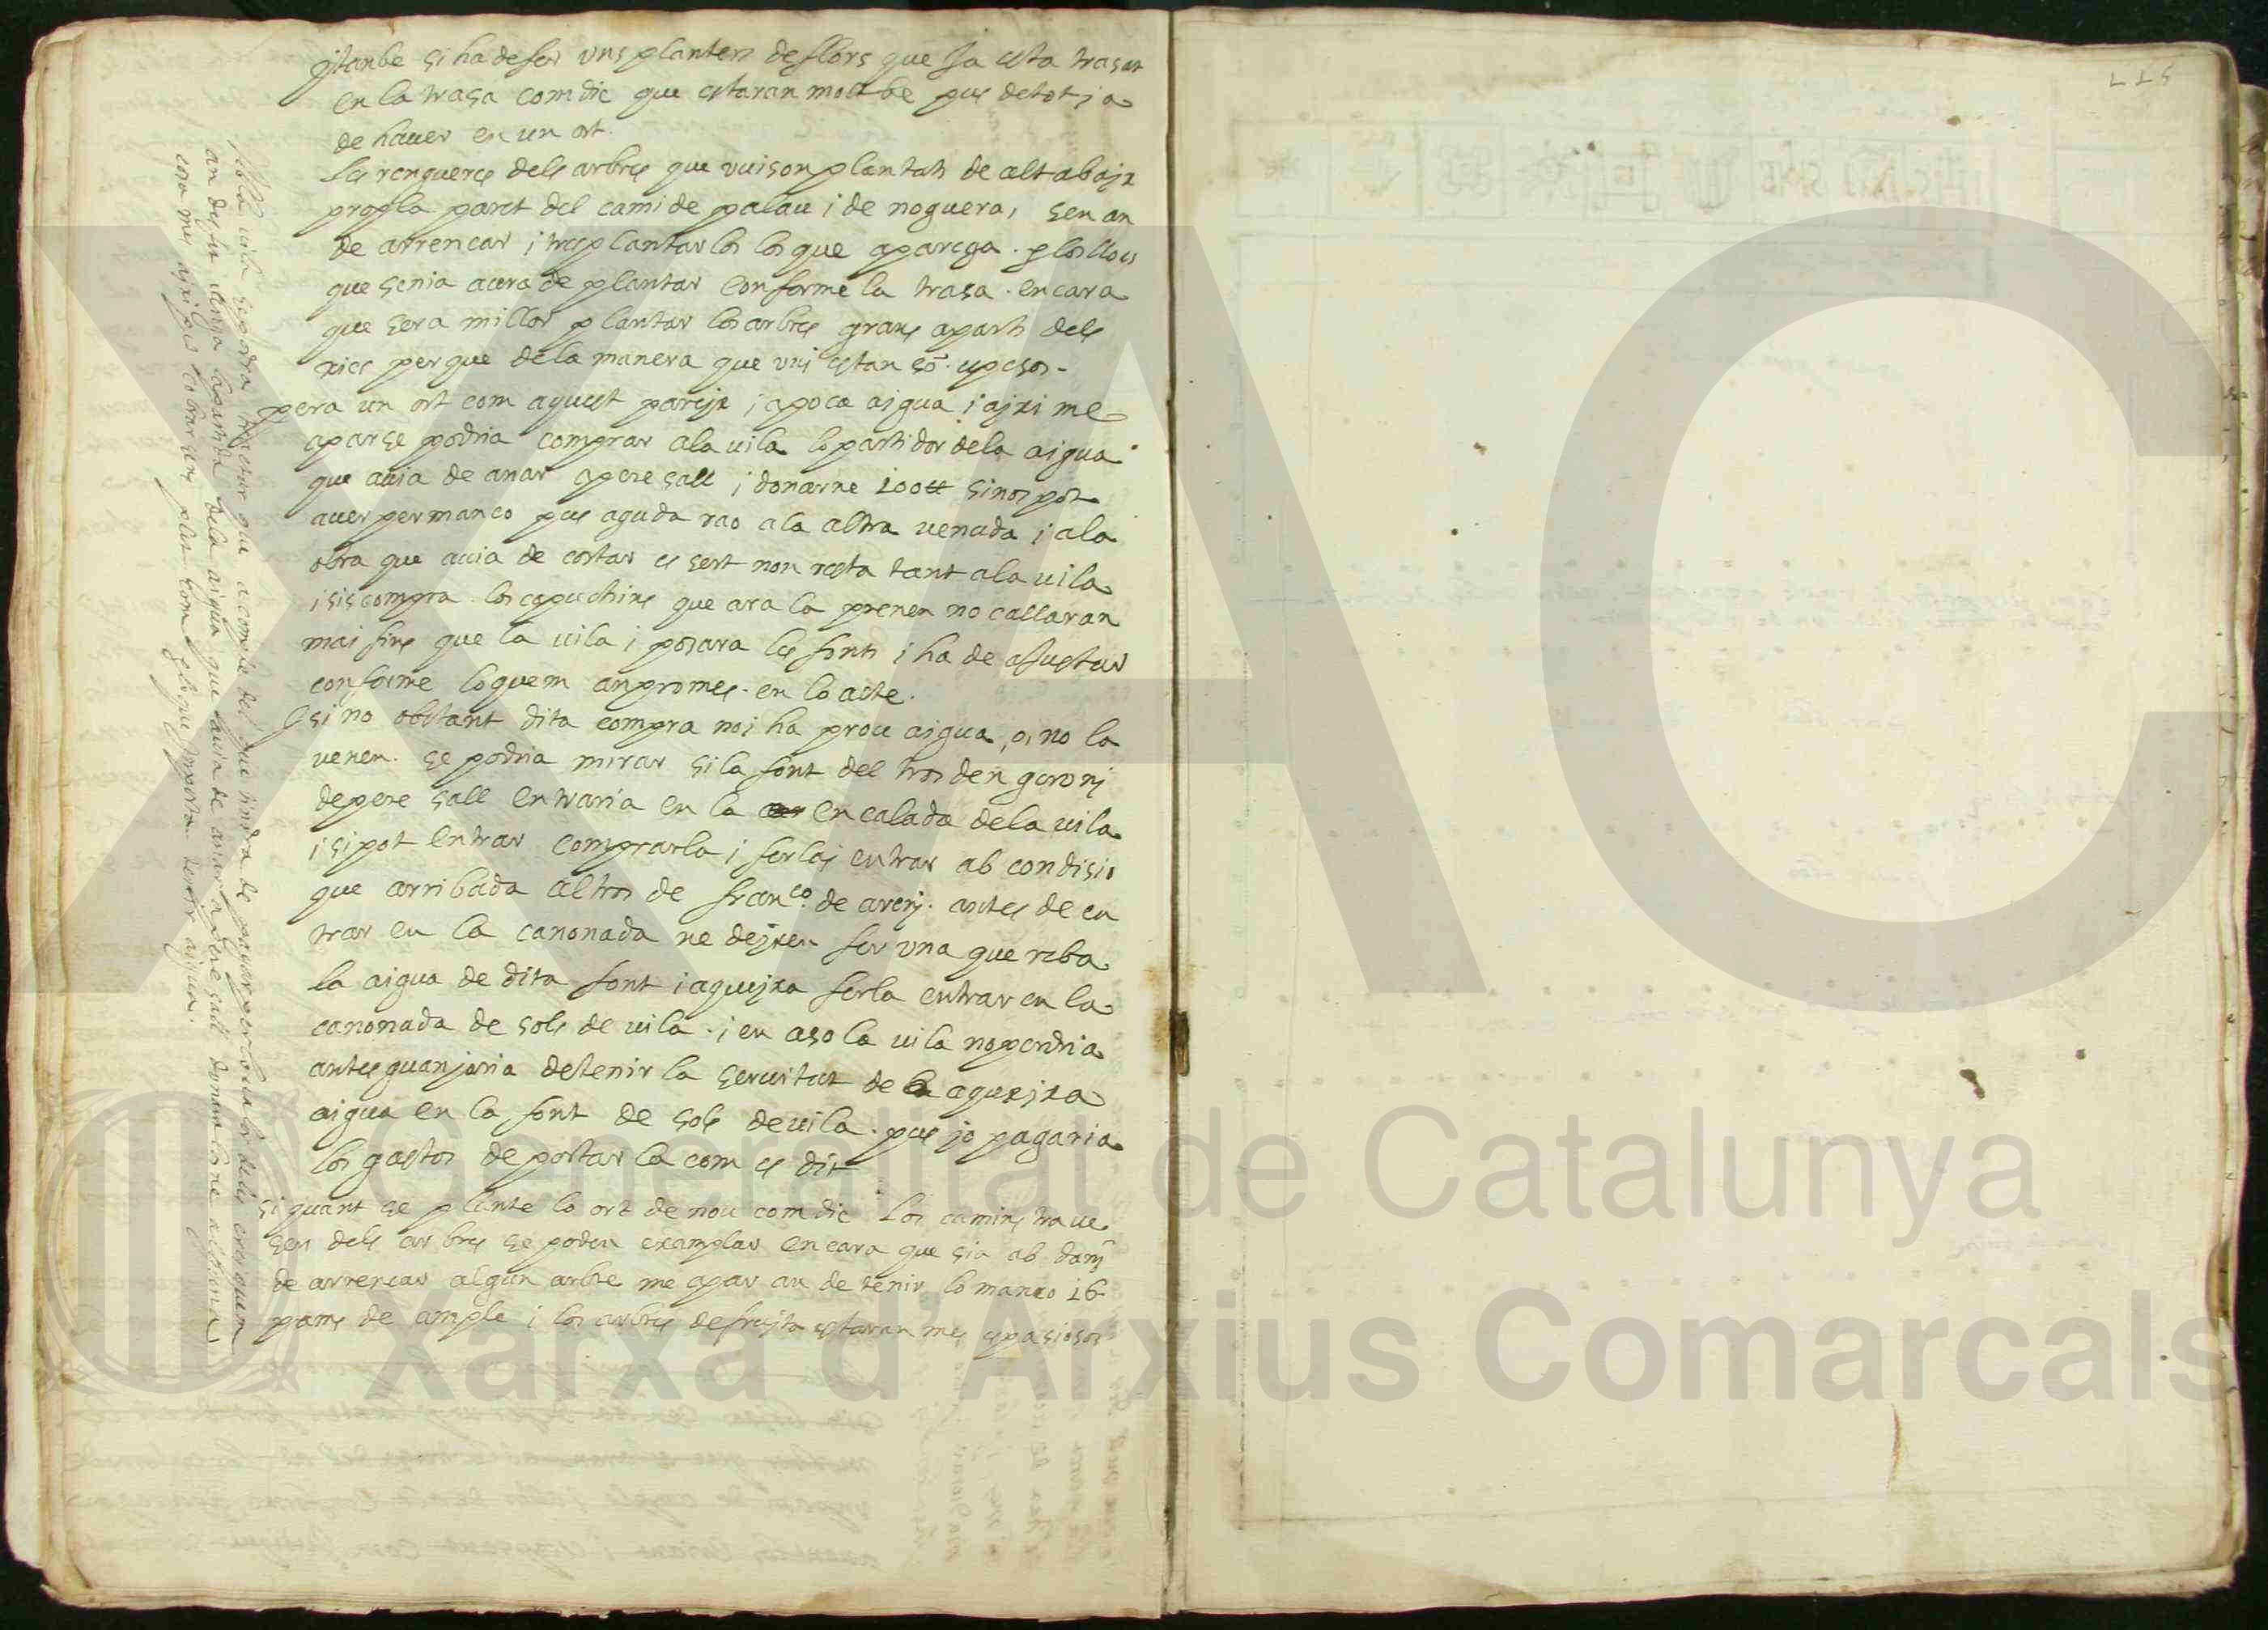 itanbe si ha de fer vns planters de flors que ja esta trasat
en la trasa com dic que estaran molt be pus de tot ja
de hauer en un ort.
les rengueres dels arbres que vui son plantats de alt abajx
prop la paret del cami de palau i de noguera, sen an
de arrencar i tresplantar los los que aparega. p los llocs
que senia aura de plantar conforme la trasa. encara
que sera millor plantar los arbres grans aparts dels
xics per que de la manera que vui estan sō. espesos.
pera un ort com aquest parejx i apoca aigua i ajxi me
apar se podria comprar ala uila lo partidor dela aigua
que auia de anar apere sall i donarne 100 ti sinos pot
auer per manco pus aguda rao ala altra venuda i ala
obra que auia de costar es sert non resta tant ala uila
i sis compra los capuchins que ara la prenen no callaran
mai fins que la uila i posara les fonts i ha de ajustar
conforme lo quem an promes. en lo acte.
si no obstant dita compra noi ha prou aigua, o, no la
venen. se podria mirar si la font del tros den geronj
de pere sall entraria en la encalada dela uila
i si pot entrar comprarla i ferlaj entrar ab condisio
que arribada al tros de franco. de arenj. antes de en
trar en la canonada ne dejxen fer vna que reba
la aigua de dita font i aquejxa ferla entrar en la
canonada de sols de uila. i en aso la uila no perdria
antes guanjaria detenir la seruitut de la aquejxa
aigua en la font de sols de uila. pus jo pagaria
los gastos de portar la com es dit
si quant se plante lo ort de nou com dic los camins traue
sers dels arbres se poden examplar encara que sia ab danj
de arrencar algun arbre me apar an de tenir lo manco 16
pams de ample i los arbres de frujta estaran mes espasiosos
Ab la uila se podra tractar que a compte del que tindra de pagar per
an de fer venja la partida dela aigua que hauia de anar a pere sall
cosa mes ajxi pus cobrarem
L L S
XAC
Generalitat de Catalunya
Xarxa d'Arxius Comarcals